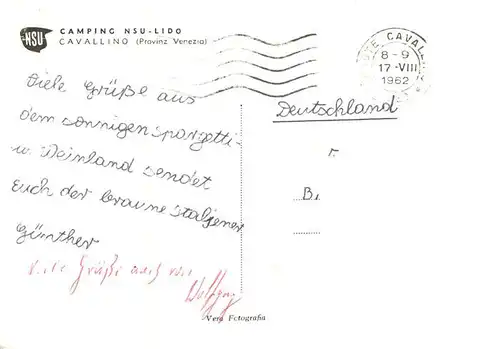 NSU
CAMPING NSU-LIDO
CAVALLINO (Provinz Venezia)
CAVALLINO
8-9
17-VIII
1962
Viele Grüße aus
dem sonnigen Spargetti-
u. Weinland sendet
Euch der braune Italjener
Günther
Viele Grüße auch von
Wolfgang
Deutschland
r.
B.
Vera Fotografia